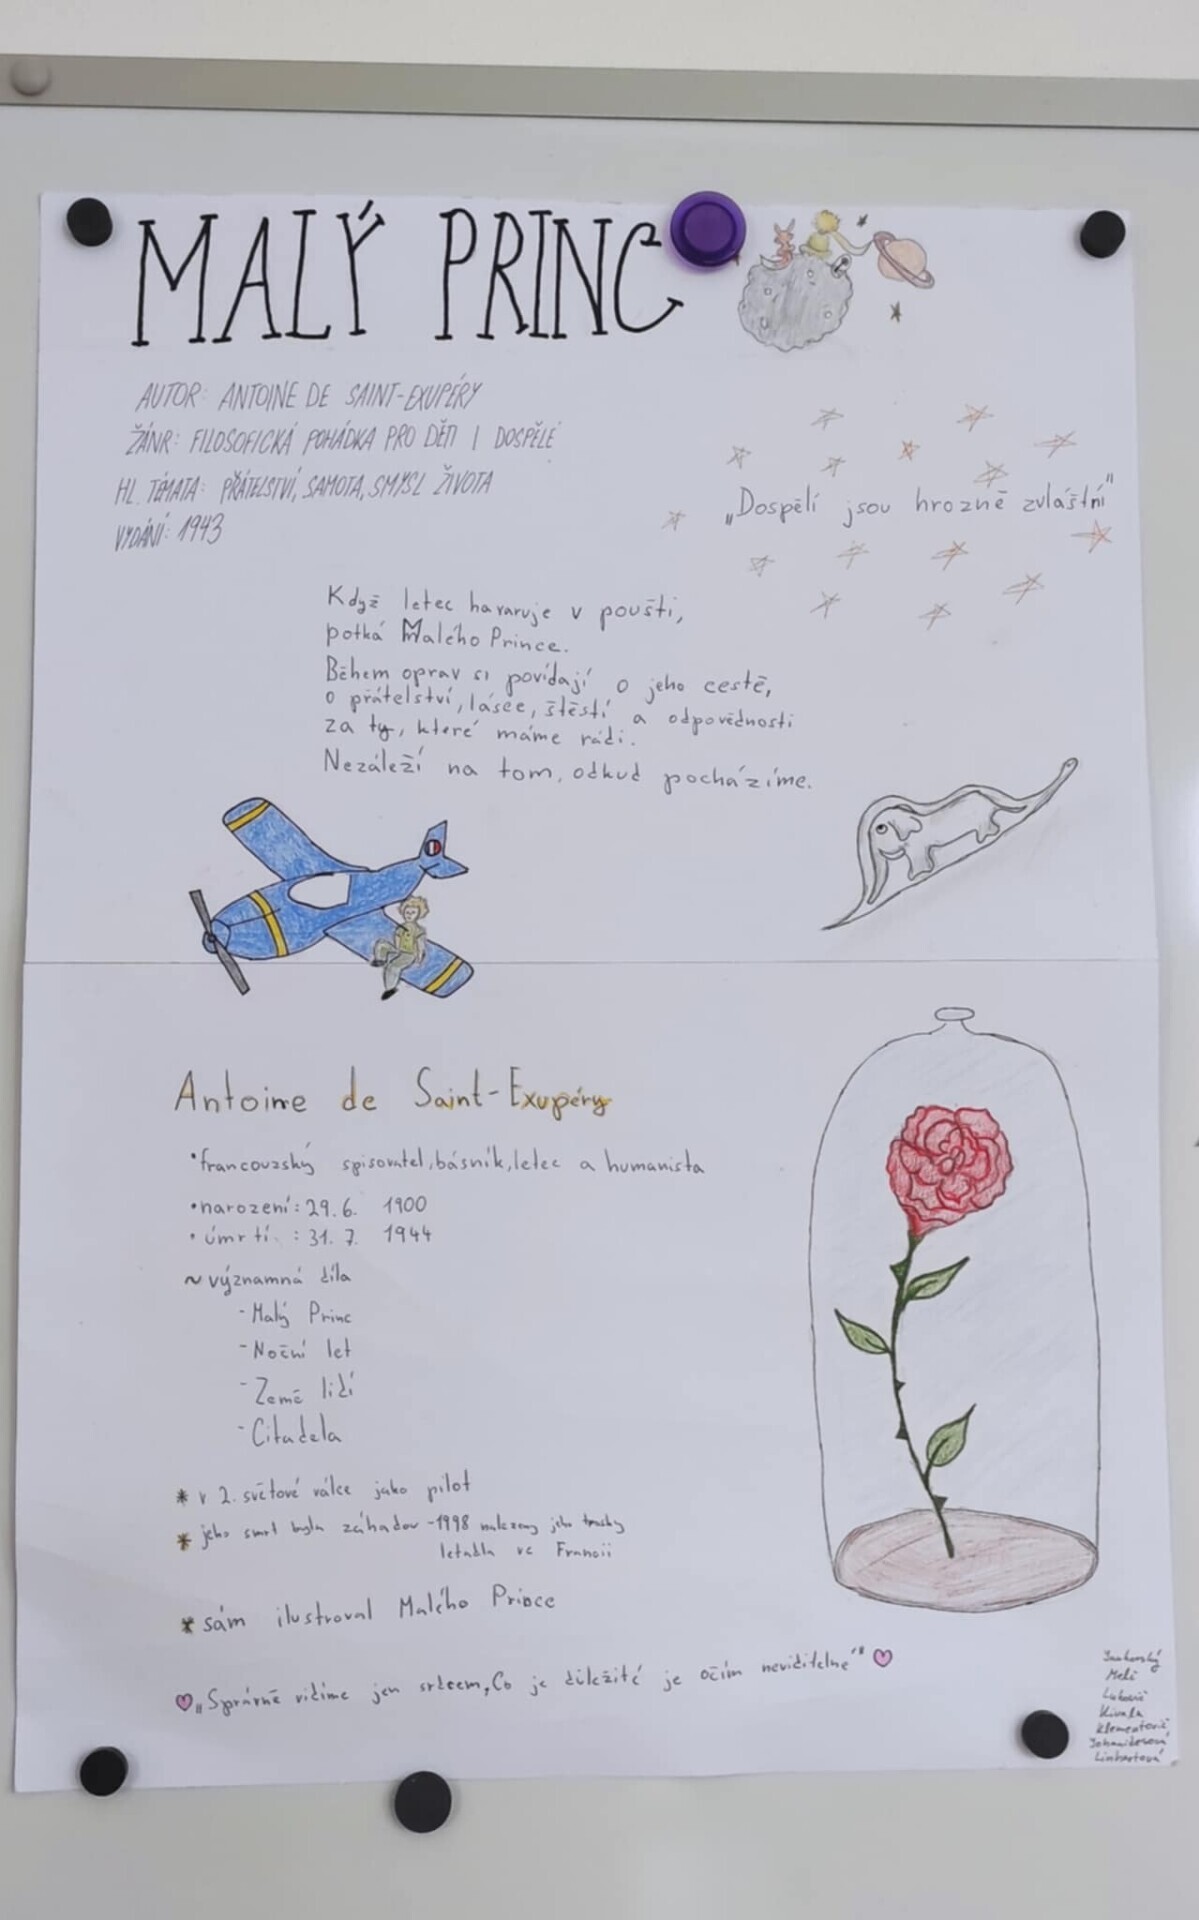 MALÝ PRINC
AUTOR: ANTOINE DE SAINT-EXUPÉRY
ŽÁNR: FILOSOFICKÁ POHÁDKA PRO DĚTI I DOSPĚLÉ
HL. TÉMATA: PŘÁTELSTVÍ, SAMOTA, SMYSL ŽIVOTA
VYDÁNÍ: 1943
„Dospělí jsou hrozně zvláštní"
Když letec havaruje v poušti,
potká Malého Prince.
Během oprav si povídají o jeho cestě,
o přátelství, lásce, štěstí a odpovědnosti
za ty, které máme rádi.
Nezáleží na tom, odkud pocházíme.
Antoine de Saint-Exupéry
•francouzský spisovatel, básník, letec a humanista
•narození: 29.6. 1900
•úmrtí : 31. 7. 1944
~významná díla
-Malý Princ
-Noční let
-Země lidí
-Citadela
* v 2. světové válce jako pilot
* jeho smrt byla záhadou -1998 nalezeny jeho trosky
letadla ve Francii
* sám ilustroval Malého Prince
„Správně vidíme jen srdcem, Co je důležité je očím neviditelné"
Klementovič
Linhartová